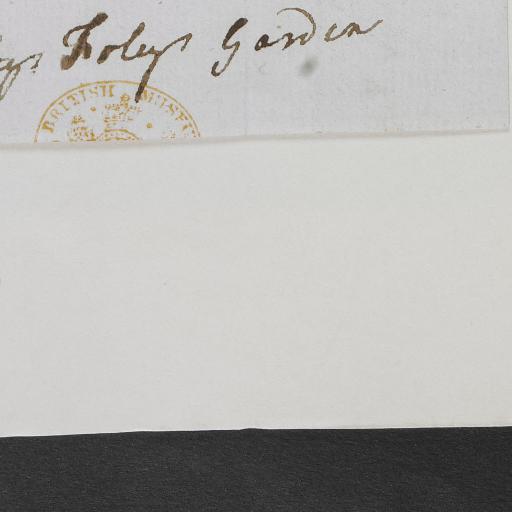 Foleys Garden
BRITISH MUSEUM